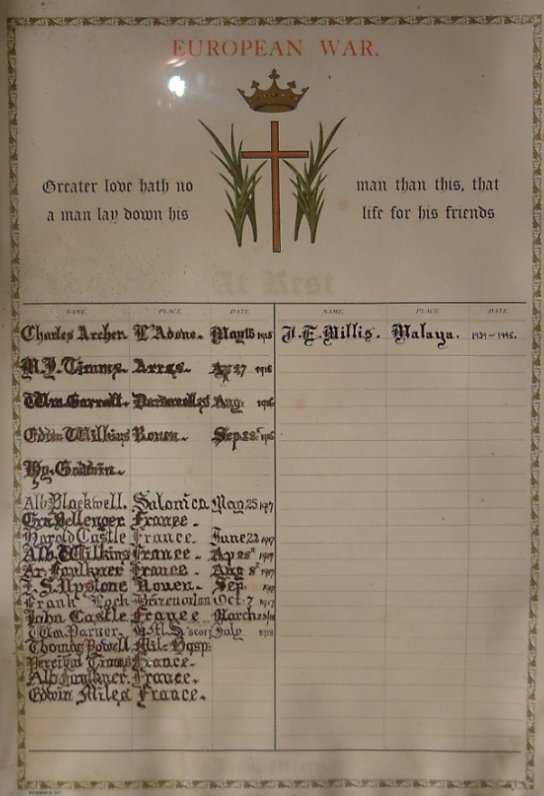 EUROPEAN WAR.
Greater love hath no man than this, that
a man lay down his life for his friends
At Rest
NAME. PLACE. DATE. NAME. PLACE. DATE.
Charles Archer. May 1915 J. E. Millis. Malaya. 1939 ~ 1945.
M. J. Timms. Arras. 27 1916
Wm. Garrett. Dardanelles Aug: 1916
Edwin Wilkins Rouen. Sep. 28. 1916
Hy. Godwin.
Alb. Blackwell. Salonica May 25 1917
Bellenger France.
Harold Castle France. June 22 1917
Alb. Wilkins France. Ap 28 1917
Ar. Faulkner France. Aug 8 1917
Upstone Rouen. Sep. 1917
Frank Lock Oct. 7 1917
John Castle France March
July 1918
Thomas Powell Mil. Hosp:
Percival Timms France.
Alb. Faulkner. France.
Edwin Miles France.
Mercy.